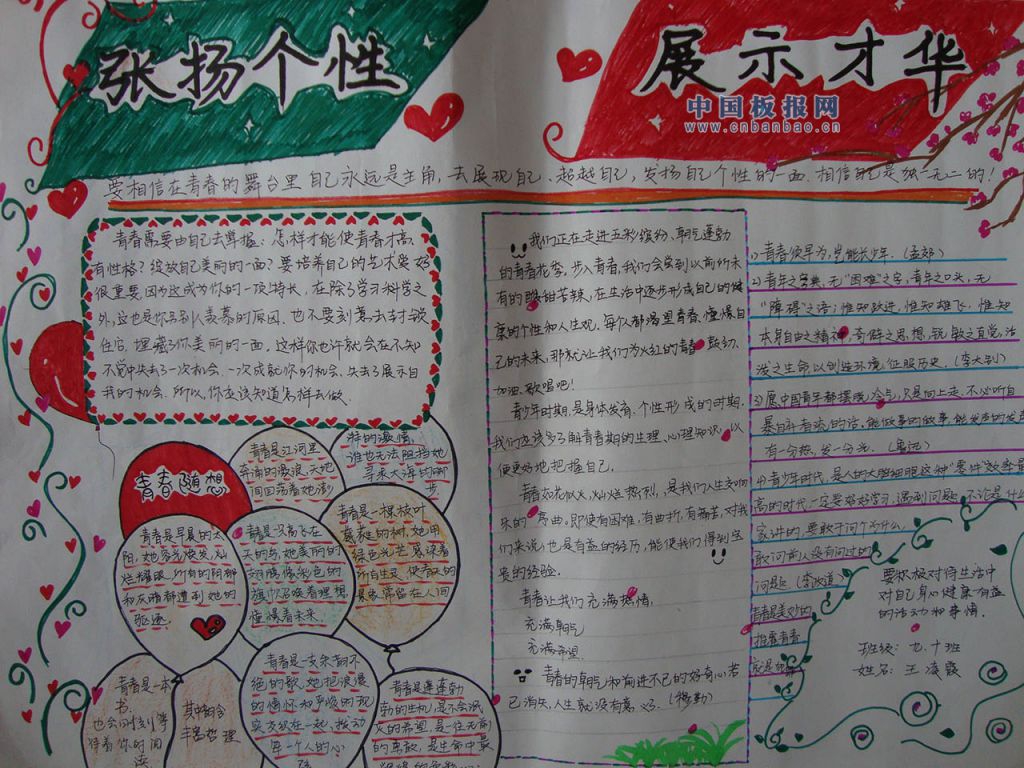 张扬个性
展示才华
中国板报网
www.cnbanbao.cn
要相信在青春的舞台里自己永远是主角，去展现自己、超越自己，发扬自己个性的一面.相信自己是独一无二的！
青春需要由自己去掌握；怎样才能使青春才高
有性格？绽放自己美丽的一面？要培养自己的艺术爱好
很重要因为这成为你的一项特长，在除了学习科学之
外，这也是你另别人羡慕的原因，也不要刻
住它.埋藏了你美丽的一面，这样你也许就会在不知
不觉中失去了一次机会，一次成就你的机会.失去了展示自
我的机会，所以，你应该知道怎样去做.
青春随想
青春是江河里
奔涌的激浪，天地
间回荡着她澎
湃的激情，
谁也无法阻挡她
寻求大海的脚
步.
青春是早晨的太
阳，她容光焕发，灿
烂耀眼，所有的阴郁
和灰暗都遭到她的
驱逐.
青春是只高飞在
天的鸟，她美丽的
翅膀像彩色的
旗帜召唤着理想，
憧憬着未来.
青春是一棵枝叶
葳蕤的树，她用
绿色光芒
所有生灵，使春天的
景象常留在人间
青春是一本
书.
也会时刻等
待着你的阅
读
其中的
丰富哲理
青春是一支余韵不
绝的歌，她把浪漫
的情怀和严峻的现
实交织在一起，拨动
每一个人的心
弦
青春是蓬蓬勃
勃的生机，是不会泯
灭的希望，是一往无前
的勇敢，是生命中最
我们正在走进五彩缤纷、朝气蓬勃
的青春花季，步入青春，我们会尝到以前所未
有的酸甜苦辣，在生活中逐步形成自己的健
康的个性和人生观，每个人都渴望青春，憧憬自
己的未来，那就让我们为火红的青春鼓劲、
加油、歌唱吧！
青少年时期，是身体发育、个性形成的时期.
我们应该多了解青春期的生理、心理知识，以
便更好地把握自己.
青春如花似火，灿烂热烈，是我们人生交响
曲的序曲，即使有困难，有曲折，有痛苦，对我
们来说，也是有益的经历，能使我们得到宝
贵的经验.
青春让我们充满热情，
充满朝气
充满希望.
青春的朝气和前进不已的好奇心若
已消失，人生就没有意义.（穆勒）
1）青春须早为，岂能长少年.（孟郊）
2）青年之字典，无“困难”之字，青年之口头，无
“障碍”之语；惟知跃进，惟知雄飞，惟知
本身自由之精神，奇僻之思想，锐敏之直觉，活
泼之生命，以创造环境，征服历史.（李大钊）
3）愿中国青年都摆脱冷气，只是向上走，不必听自
暴自弃者流的话，能做事的做事，能发声的发声，
有一分热，发一分光.（鲁迅）
4）青少年时代，是人的大脑细胞这种“零件”效率最
高的时代，一定要好好学习，遇到问题，不论是什么
家讲的，要敢于问个为什么
敢问前人没有问过的
问题.（李政道）
青春是美妙的
挥霍青春
就是
要积极对待生活中
对自己身心健康有益
的活动和事情.
班级：七.十班
姓名：王凌霞